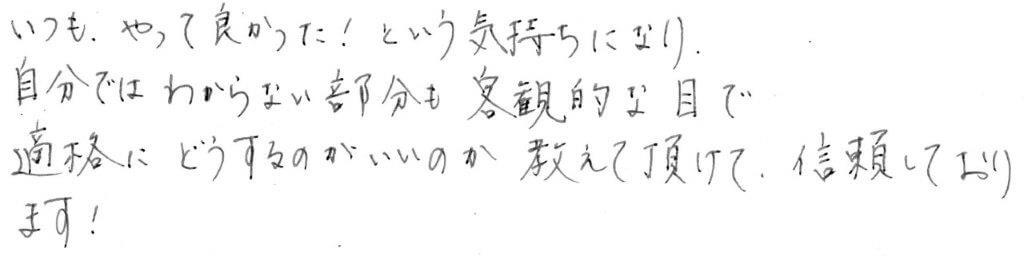 いつも、やって良かった！という気持ちになり、
自分ではわからない部分も客観的な目で
適格にどうするのがいいのか教えて頂けて、信頼しており
ます！